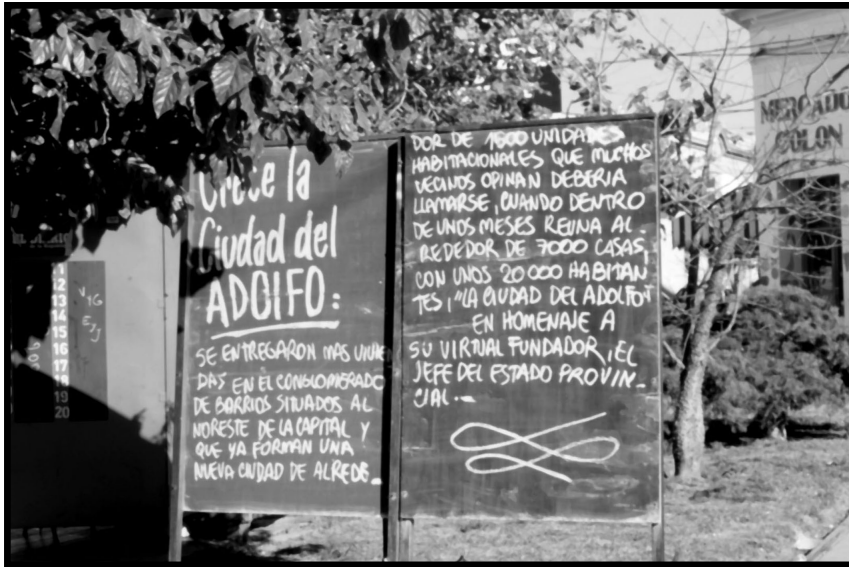 Crece la
Ciudad del
ADOLFO:
SE ENTREGARON MAS VIVIEN
DAS EN EL CONGLOMERADO
DE BARRIOS SITUADOS AL
NORESTE DE LA CAPITAL Y
QUE YA FORMAN UNA
NUEVA CIUDAD DE ALREDE_
DOR DE 1600 UNIDADES
HABITACIONALES QUE MUCHOS
VECINOS OPINAN DEBERIA
LLAMARSE, CUANDO DENTRO
DE UNOS MESES REUNA AL-
REDEDOR DE 7000 CASAS,
CON UNOS 20000 HABITAN
TES, "LA CIUDAD DEL ADOLFO"
EN HOMENAJE A
SU VIRTUAL FUNDADOR, EL
JEFE DEL ESTADO PROVIN_
CIAL._
MERCADO
COLON
11
12
13
14
15
16
17
18
19
20